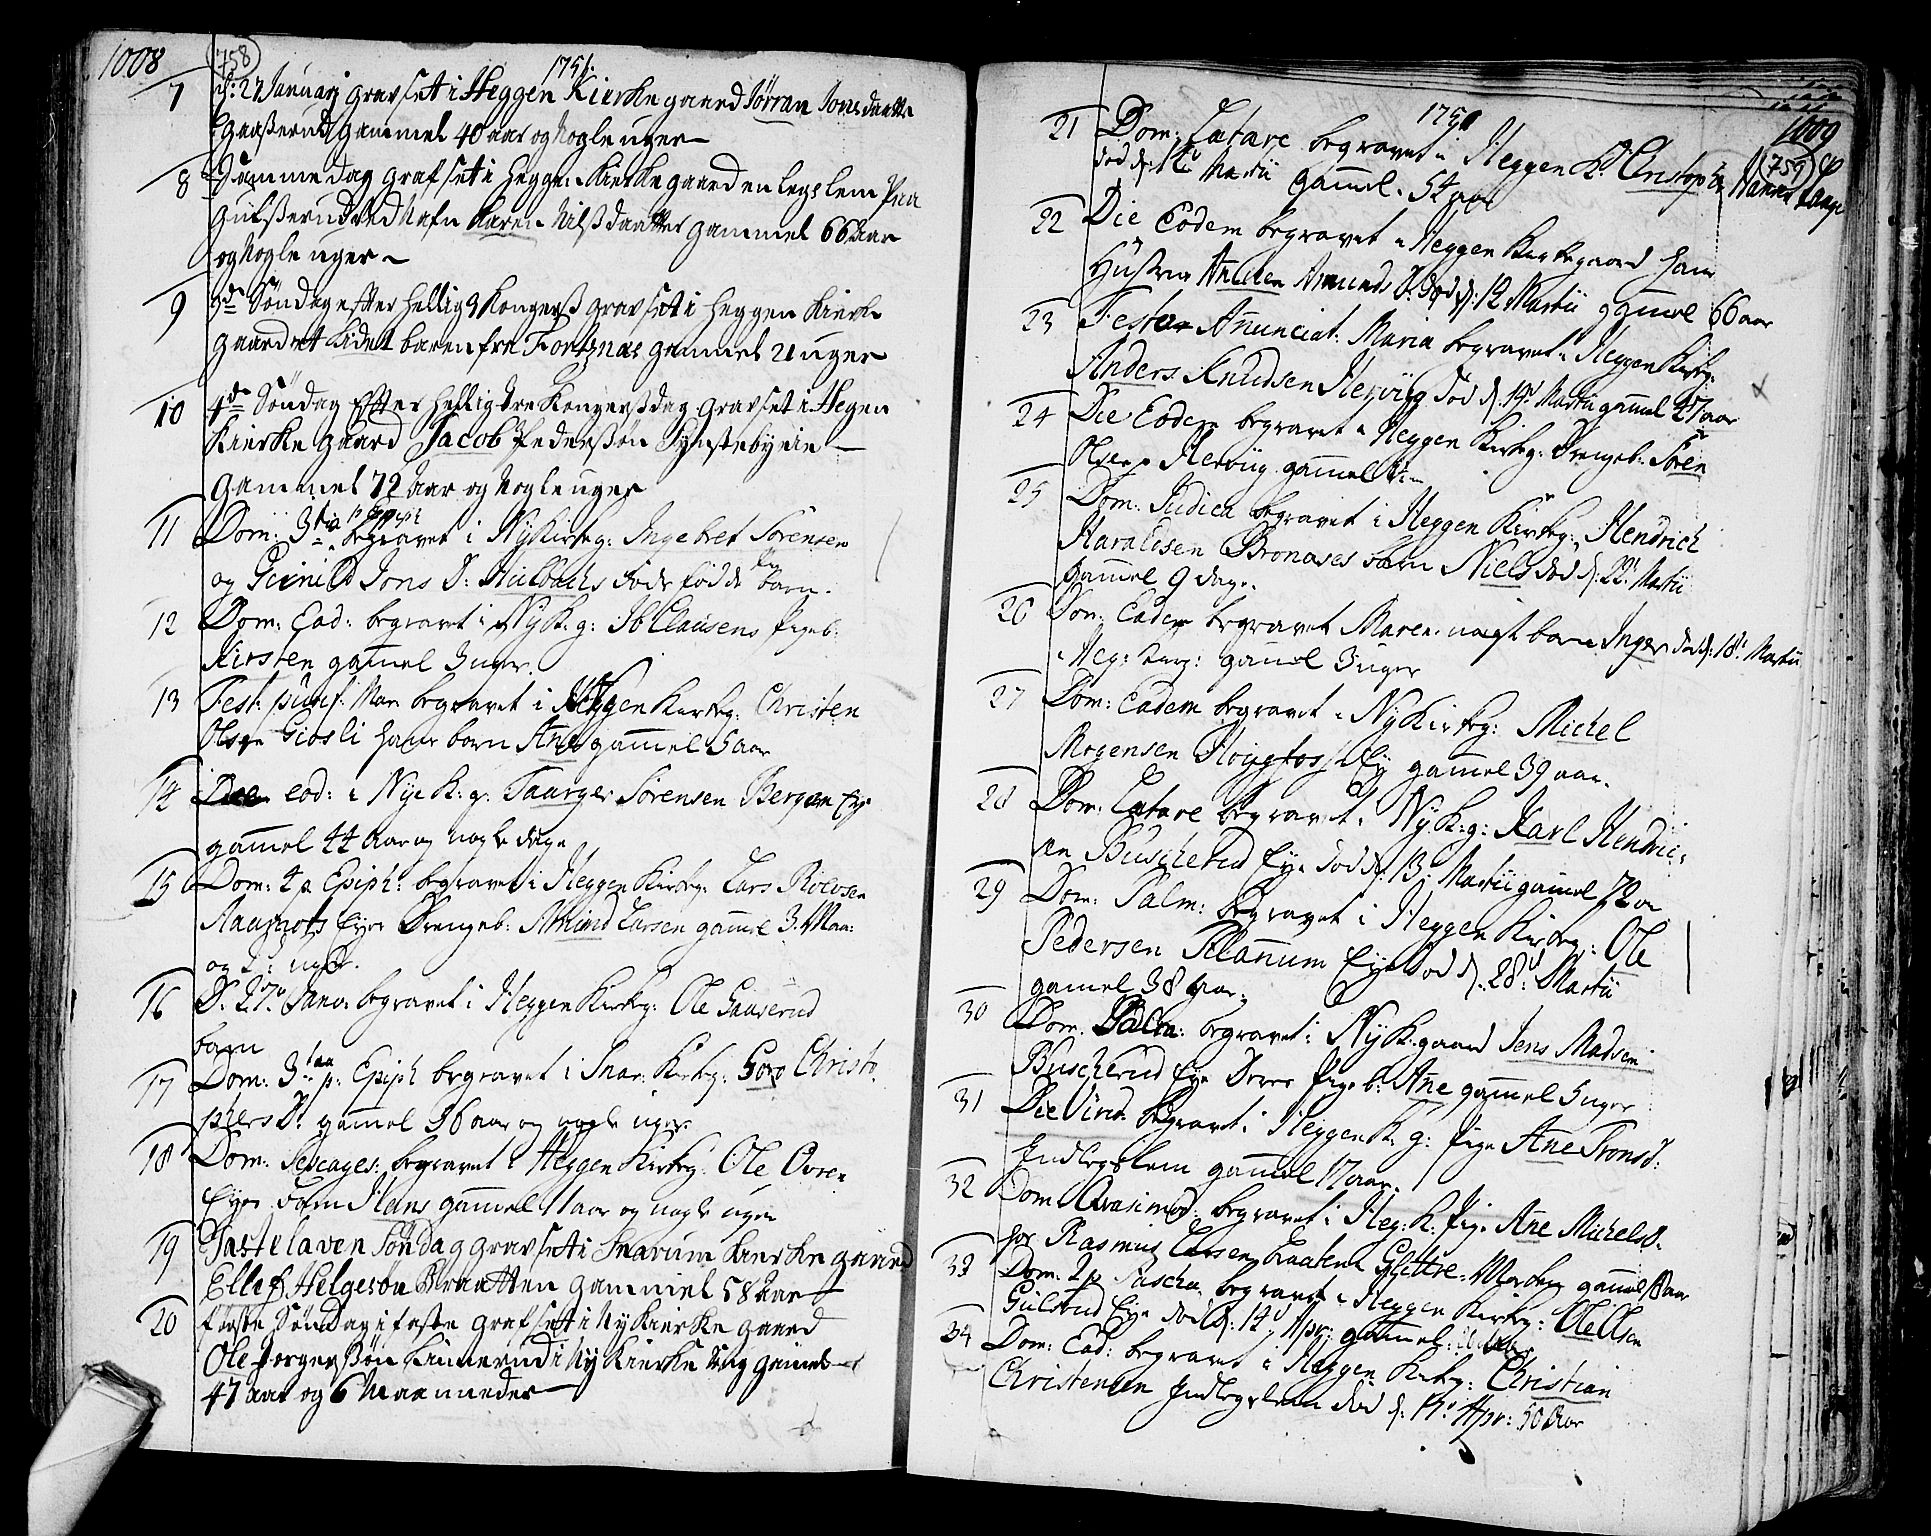 1008
758
1751.
7 d: 27 Januarj Grafset i Heggen Kierke gaard Jørran Jonsdaatter
Gaaßerud gammel 40 aar og Nogle uger
8 Samme dag Grafset i Hegge: Kierke gaard en Legslem Paa
Gulßerud ved Nafn Karen Nilßdaatter gammel 66 Aar
og Nogle uger
9 3de Søndag efter hellig 3 Kongerß grafset i Heggen Kierke
gaard et Lidet baren fra Fortznas gammel 2 uger
10 4de Søndag Efter Hellig tre Kongerßdag Grafset i Hegen
Kierke gaard Jacob Pederßøn
Gammel 72 Aar og Nogle uger
11 Dom: 3tia p Epiph begravet i Ny Kirkeg: Ingebret Sörensen
og Gunild Jons D: Hulbachs död födde barn.
12 Dom: Ead: begravet i Ny K: g: Ib Clausens Pigeb:
Kirsten gamel 3 uger.
13 Fest: purif: Mar begravet i Heggen Kirkeg: Christen
Olsen Giosli hans barn Ane gammel 5 aar
14 Die eod: i Nye K: g: Taarger Sörensen Bergan Eye
gamel 44 Aar og nogle dage
15 Dom: 4 p Epiph: begravet i Heggen Kirkeg: Lars Rolvsen
Eye Drengeb: Amund Larsen gammel 3: Maa:
og 2: uger.
16 D. 27de Janv: begravet i Heggen Kirkeg: Ole Gaaserud
barn
17 Dom: 3tia p: Epiph begravet i Snar: Kirkeg: Goro Christo
phers D: gammel 36 aar og nogle uger
18 Dom: Sexages: begravet i Heggen Kirkeg: Ole Ovren
Eye Hans gammel 11 aar og nogle uger
19 Fastelaven Söndag Grafset i Snarum Kierke gaard
Ellef Helgesön Braatten gammel 58 Aar
20 förste Søndag i faste Grafset i Ny Kierke gaard
Ole Torgerßøn i Ny Kierke Sog gamel
47 Aar og 6 Maanneder
1009
759
1751
21 Dom: Lætare begravet i Heggen K: Christoph
död d: 12 Martii gammel 54 aar
22 Die Eodem begravet i Heggen Kirkegaard hans
Hustrue Amunds D: död d: 12 Martii gamel 66 aar
23 Festo Anunciat: Maria begravet i Heggen Kirkeg:
Anders Knudsen Hervig död d: 19 Martii gamel 47 aar
24 Die Eodem begravet i Heggen Kirkeg: Drengeb: Sören
Olsen Hervig gammel
25 Dom: Judica begravet i Heggen Kirkeg: Hendrich
Haraldsen Bronases barn Niels död d: 22 Martii
gammel 9 dage.
26 Dom: Eadem begravet Maren barn Inger död d: 18: Martii
i Heg: Kirkg: gamel 3 uger
27 Dom: Eadem begravet i Ny Kirkeg: Michel
Mogensen Hoigfoss Eye gammel 39 aar.
28 Dom: Lætare begravet i Ny K: g: Karl Hendric:
sen Buscherud Eye död d: 13: Martii gamel 72 aar
29 Dom: Palm: begravet i Heggen Kirkeg: Ole
Pedersen Eye död d: 28: Martii
gamel 38 Aar.
30 Dom. Palm: begravet i Ny K: gaard Jens Madsen
Buscherud Eye Deres Pigeb: Ane gammel 5 uger
31 Die Virid. begravet i Heggen K: g: Pige Ane Tronsd:
Indlegslem gammel 17 aar.
32 Dom Qvasimod: begravet i Heg: K: Pige Ane Michelsd:
hos Rasmus Larsen
33 Dom: 2 p Pascha begravet i Heggen Kirkeg: Ole Olsen
Gulsrud Eye död d: 14 Apr: gammel
34 Dom: Ead: begravet i Heggen Kirkeg: Christian
Christensen Indlegslem död d: 17: Apr: 50 Aar